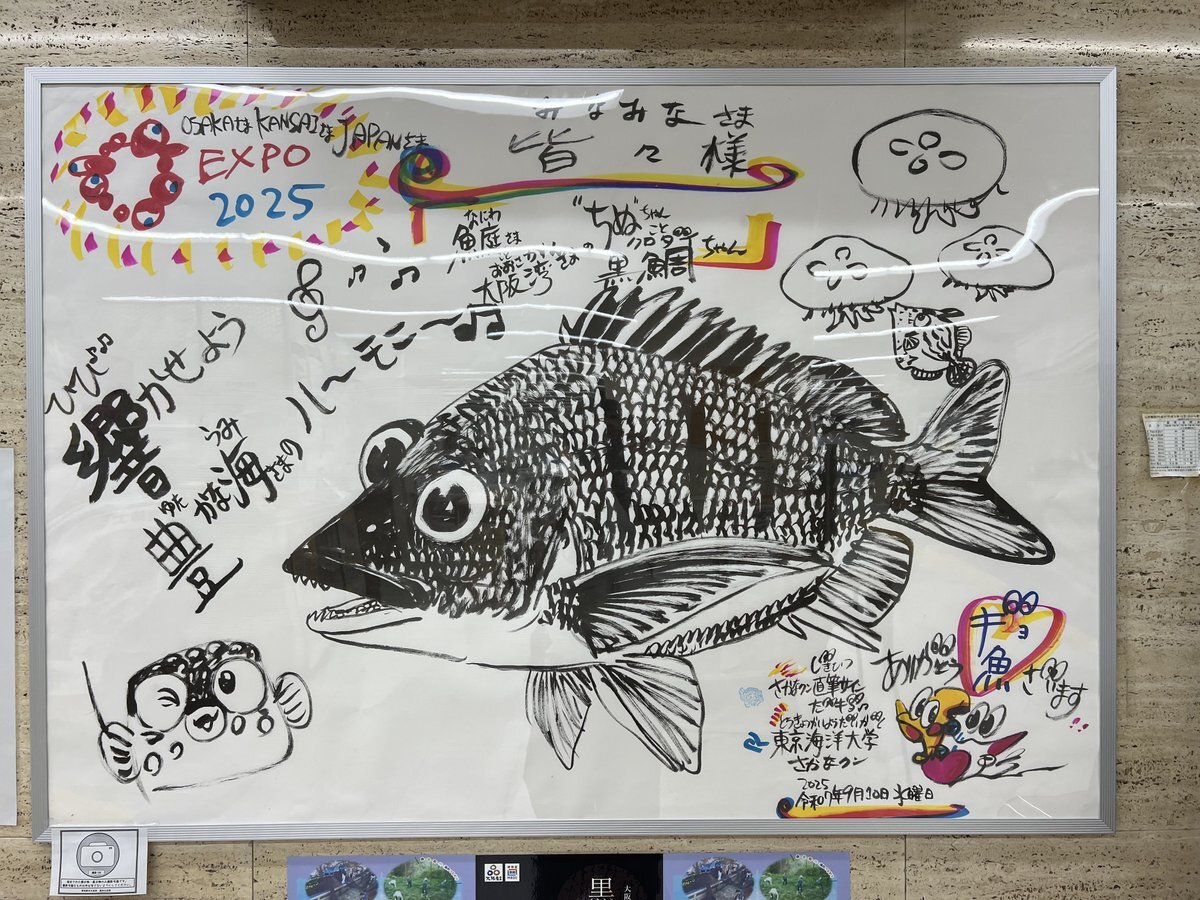 OSAKAさま KANSAIさま JAPANさま
EXPO
2025
みなみなさま
皆々様
なにわ
魚庭さま
こと
おおさかわん
大阪湾さまの
"ちぬ"ちゃん
こと
クロダイ
黒鯛ちゃん
ひびかせよう
響
ゆた うみ
豊かな海さまの
ハ〜モニ〜
ギョ
ありがとう魚ざいます
さかなクン直筆サイン
だギョ
とうきょうかいようだいがく
東京海洋大学
さかなクン
2025
令和7年9月10日水曜日
黒